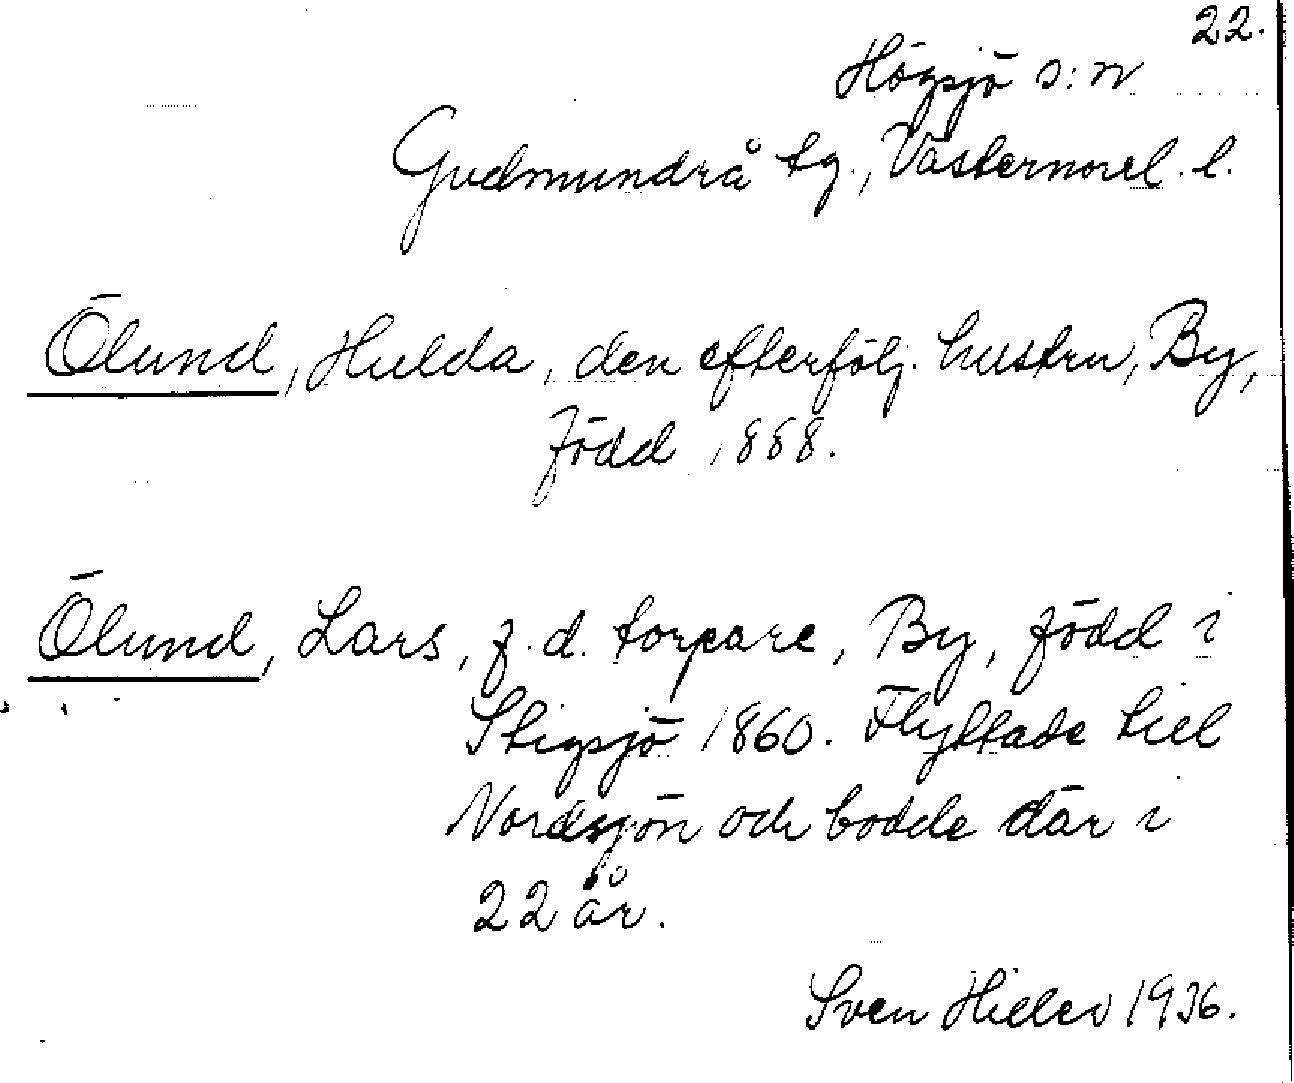 22.
Högsjö s:n
Gudmundrå tg., Västernorrl. l.
Ölund, Hulda, den efterfölj. hustru, By,
född 1888.
Ölund, Lars, f.d. torpare, By, född i
Stigsjö 1860. Flyttade till
Nordsjön och bodde där i
22 år.
Sven Hiller 1936.